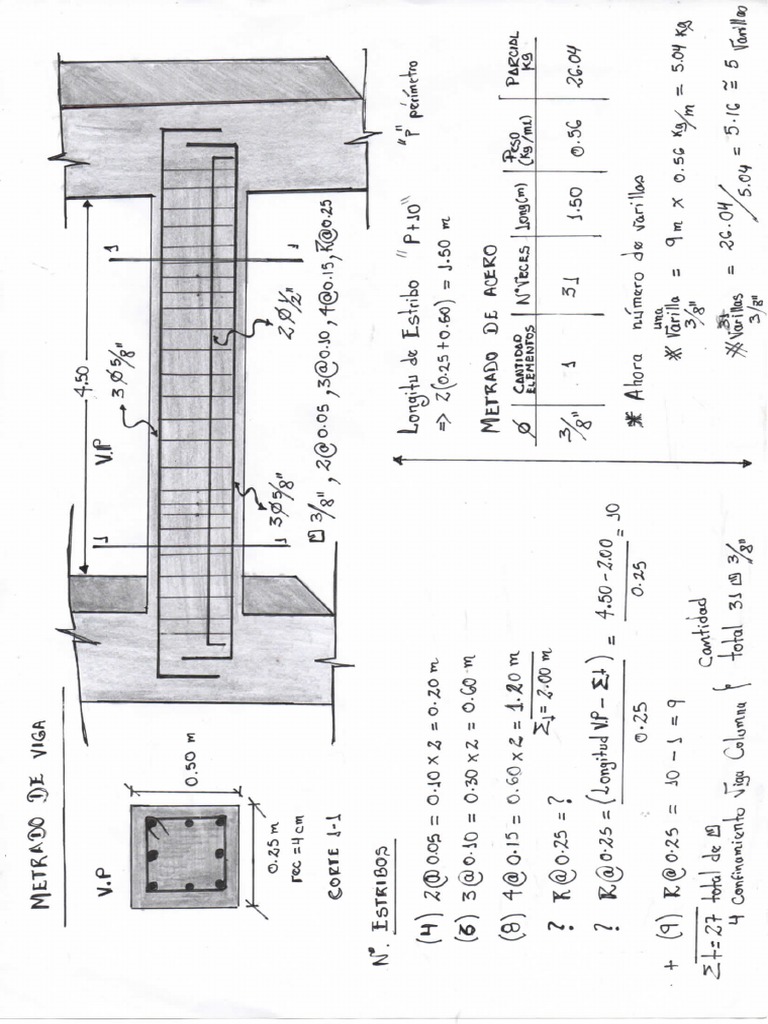 METRADO DE VIGA
V.P
0.50 m
0.25 m
rec = 4 cm
CORTE 1-1
4.50
V.P
3 Ø 5/8"
1
1
1
1
3 Ø 5/8"
2 Ø 1/2"
3/8", 2@0.05, 3@0.10, 4@0.15, R@0.25
Nº. ESTRIBOS
(4) 2@0.05 = 0.10 x 2 = 0.20 m
(6) 3@0.10 = 0.30 x 2 = 0.60 m
(8) 4@0.15 = 0.60 x 2 = 1.20 m
Σ⊥ = 2.00 m
? R@0.25 = ?
? R@0.25 = (Longitud V.P - Σ⊥) / 0.25 = 4.50 - 2.00 / 0.25 = 10
+ (9) R@0.25 = 10 - 1 = 9
Σt = 27 total de
4 Confinamiento Viga Columna
Cantidad
total 31 3/8"
Longitu de Estribo "P+10" "P" perímetro
=> 2(0.25 + 0.50) = 1.50 m
METRADO DE ACERO
Ø CANTIDAD ELEMENTOS Nº VECES Long(m) PESO (Kg/ml) PARCIAL Kg
3/8" 1 31 1.50 0.56 26.04
* Ahora número de varillas
* una Varilla 3/8" = 9 m x 0.56 Kg/m = 5.04 Kg
* Varillas 3/8" = 26.04/5.04 = 5.16 ≈ 5 Varillas